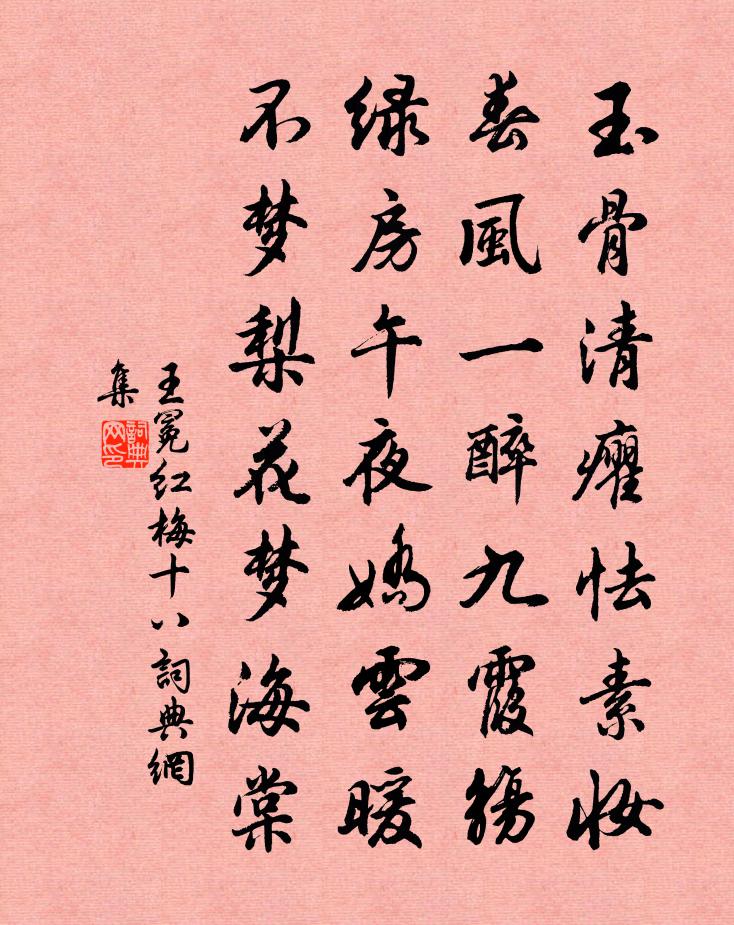 玉骨清癯怯素妆
春風一醉九霞觴
绿房午夜嬌雲暖
不梦梨花梦海棠
王冕红梅十八詞典網
集
詞典网印